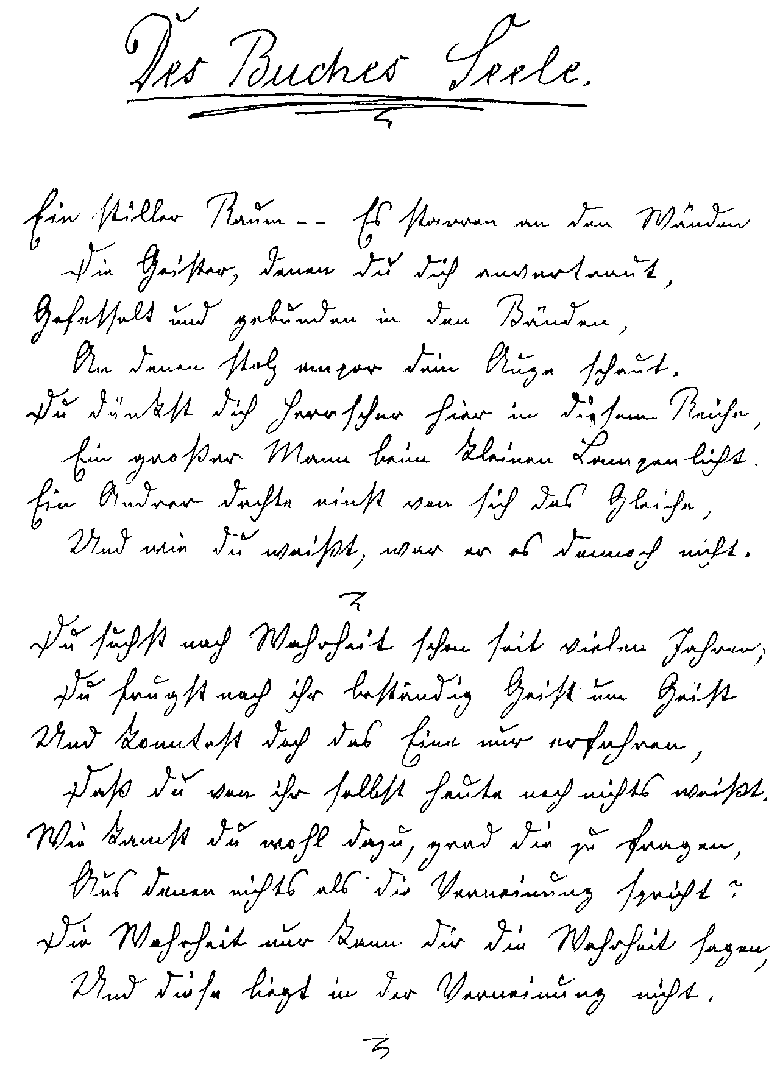 Des Buches Seele.
Ein stiller Raum -- Es starren an den Wänden
Die Geister, denen du dich anvertraut,
Gefesselt und gebunden in den Bänden,
An denen stolz empor dein Auge schaut.
Du dünkst dich Herrscher hier in diesem Reiche,
Ein großer Mann beim kleinen Lampenlicht.
Ein Andrer dachte einst von sich das Gleiche,
Und wie du weißt, war er es dennoch nicht.
Du suchst nach Wahrheit schon seit vielen Jahren;
Du frugst nach ihr beständig Geist um Geist
Und konntest doch das Eine nur erfahren,
Daß du von ihr selbst heute noch nichts weißt.
Wie kamst du wohl dazu, grad die zu fragen,
Aus denen nichts als die Verneinung spricht?
Die Wahrheit nur kann dir die Wahrheit sagen,
Und diese liegt in der Verneinung nicht.